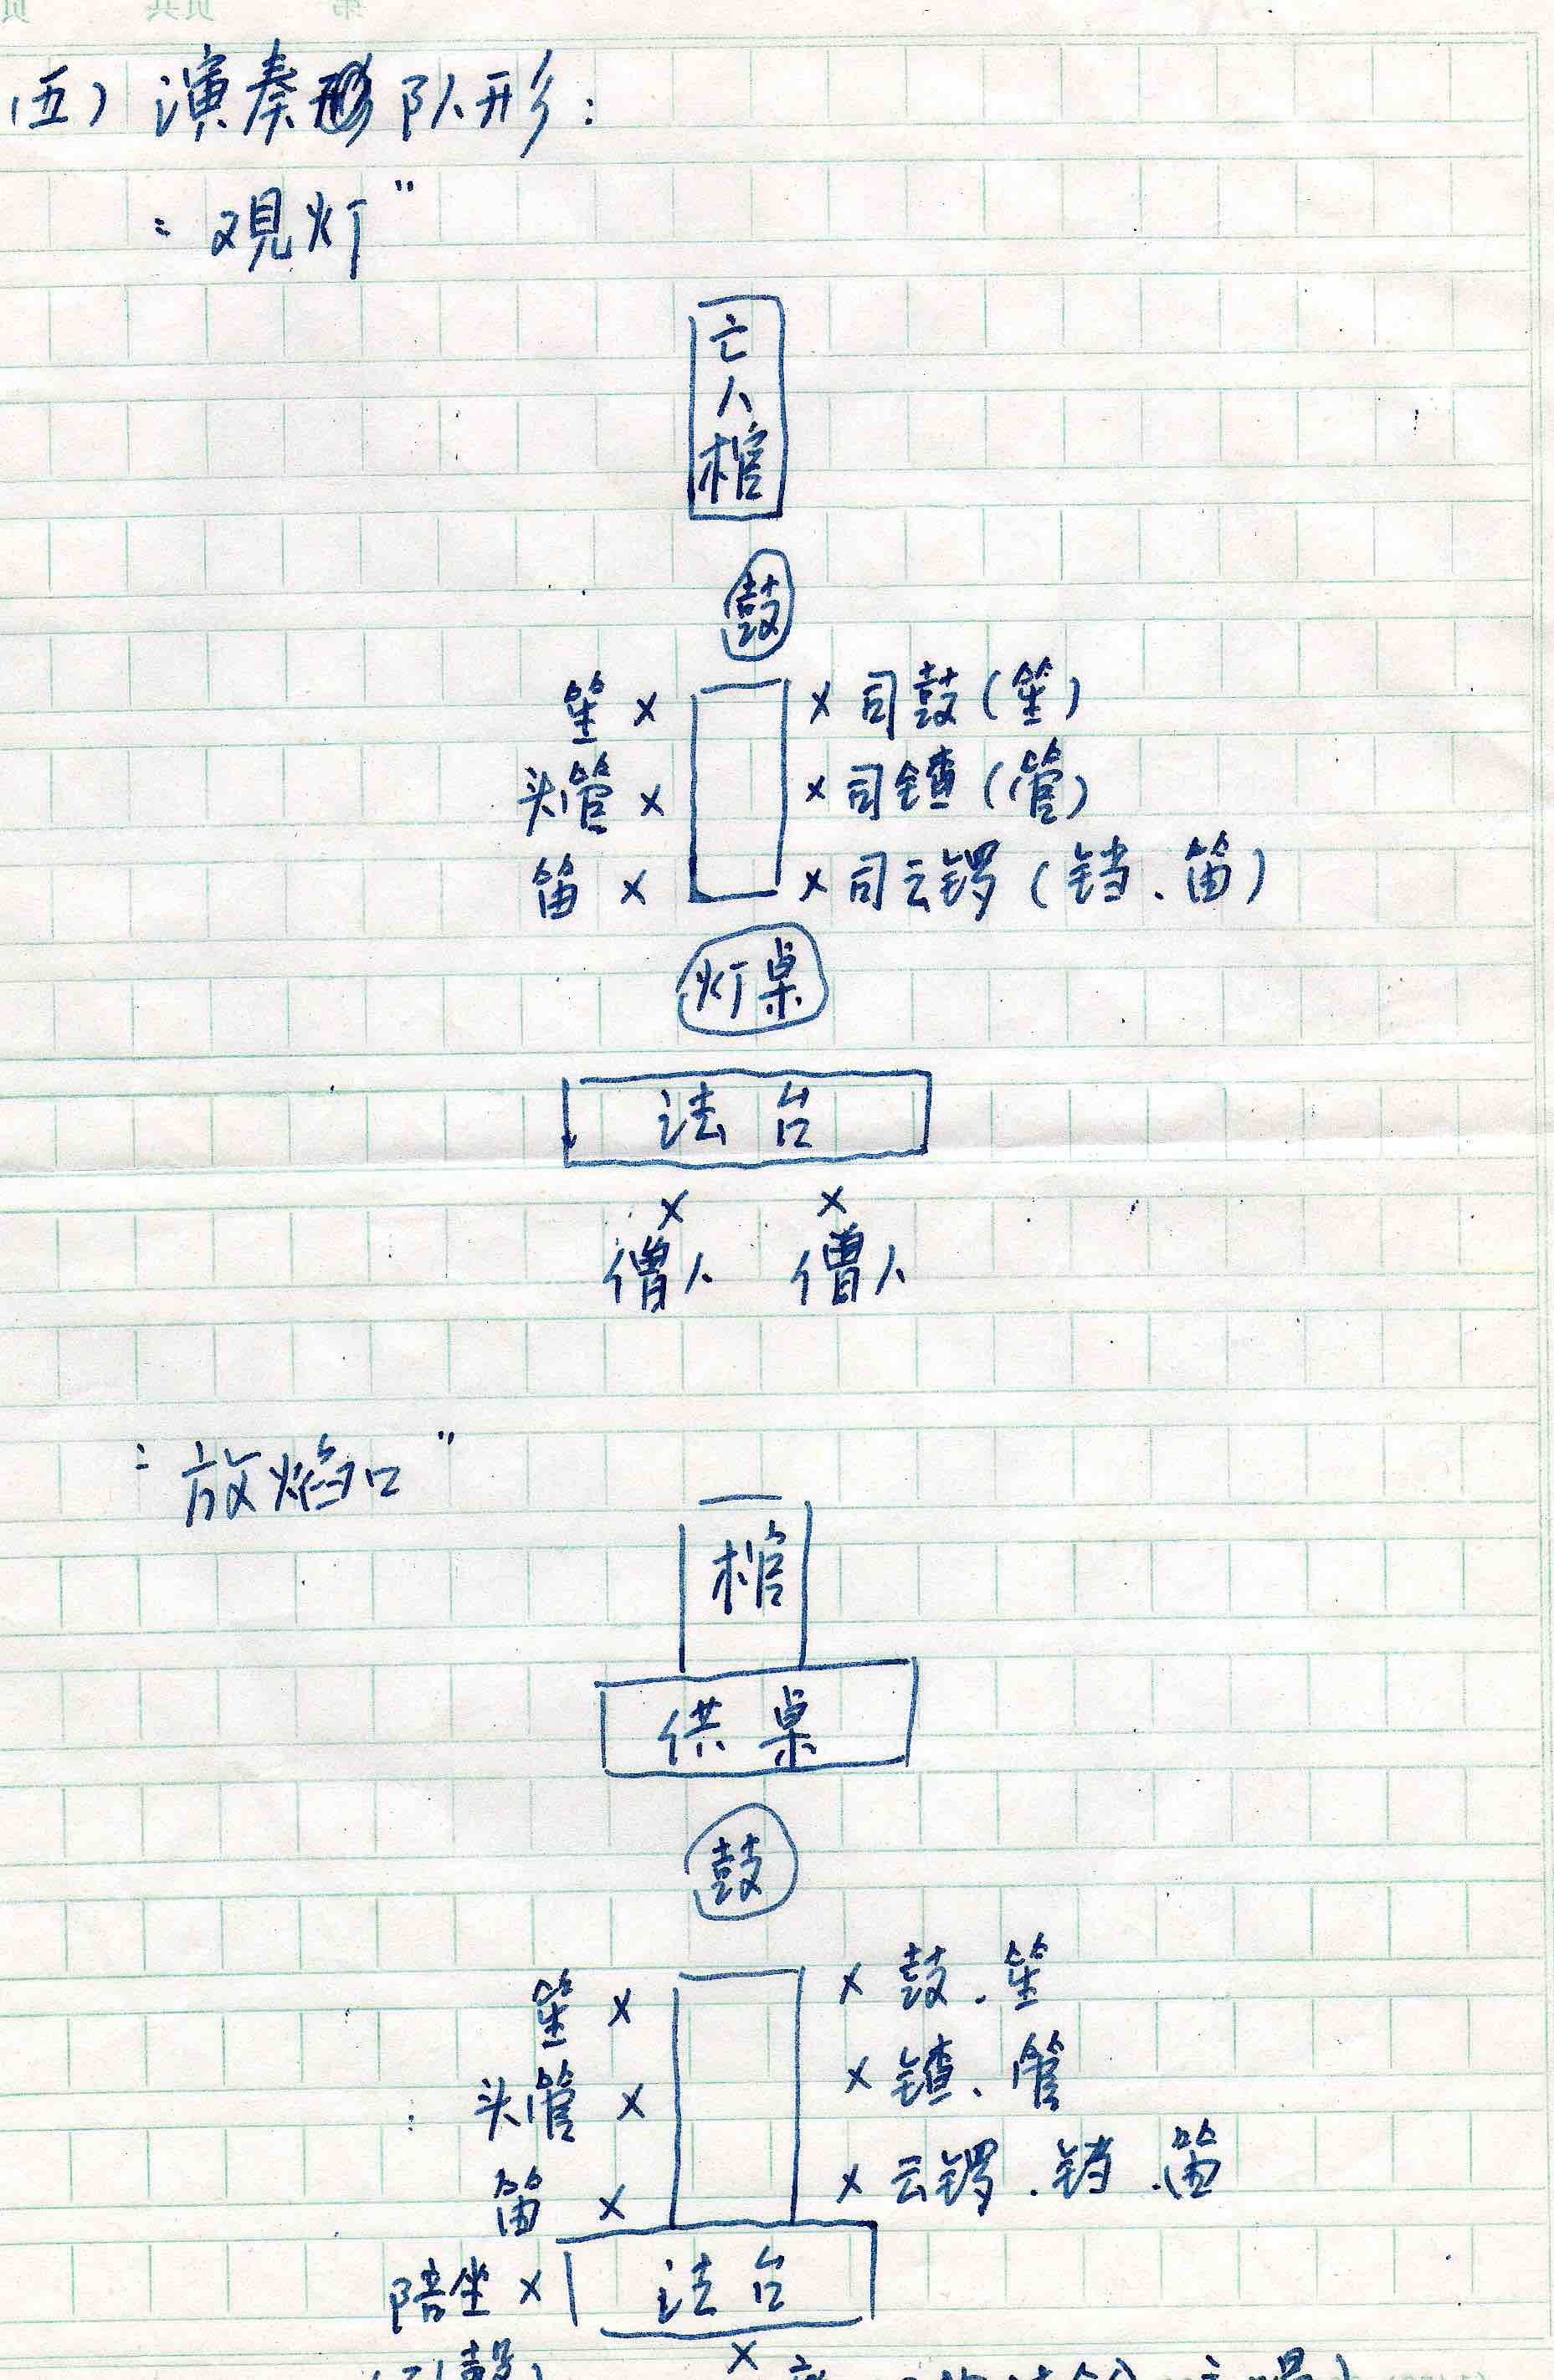 (五) 演奏队形:
"观灯"
亡人棺
鼓
笙 × × 司鼓(笙)
头管 × × 司镲(管)
笛 × × 司云锣(铛、笛)
灯桌
法台
× ×
僧人 僧人
"放焰口"
棺
供桌
鼓
笙 × × 鼓、笙
头管 × × 镲、管
笛 × × 云锣、铛、笛
陪坐 × 法台
×